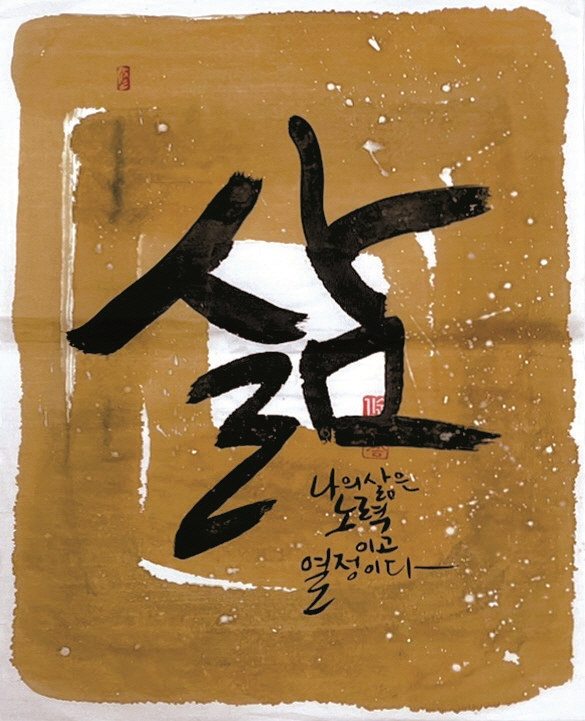 삶
나의삶은
노력
이고
열정이다